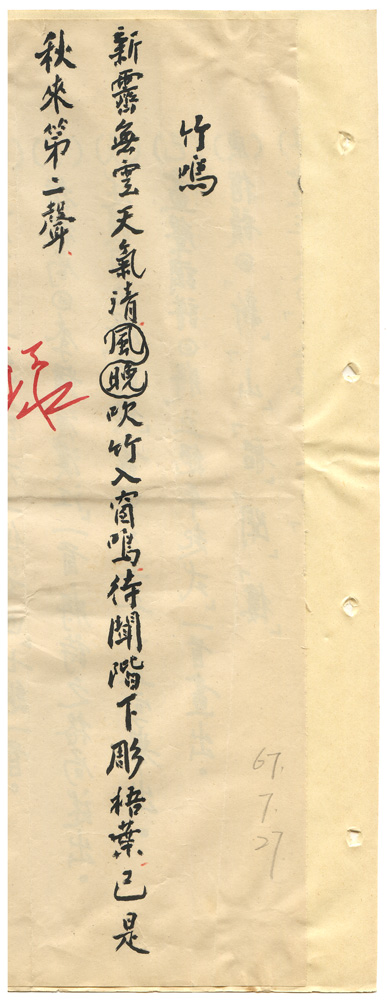 67.
7.
27.
竹鳴
新霽無雲天氣清風晚吹竹入窗鳴待聞階下彫梧葉已是
秋來第二聲